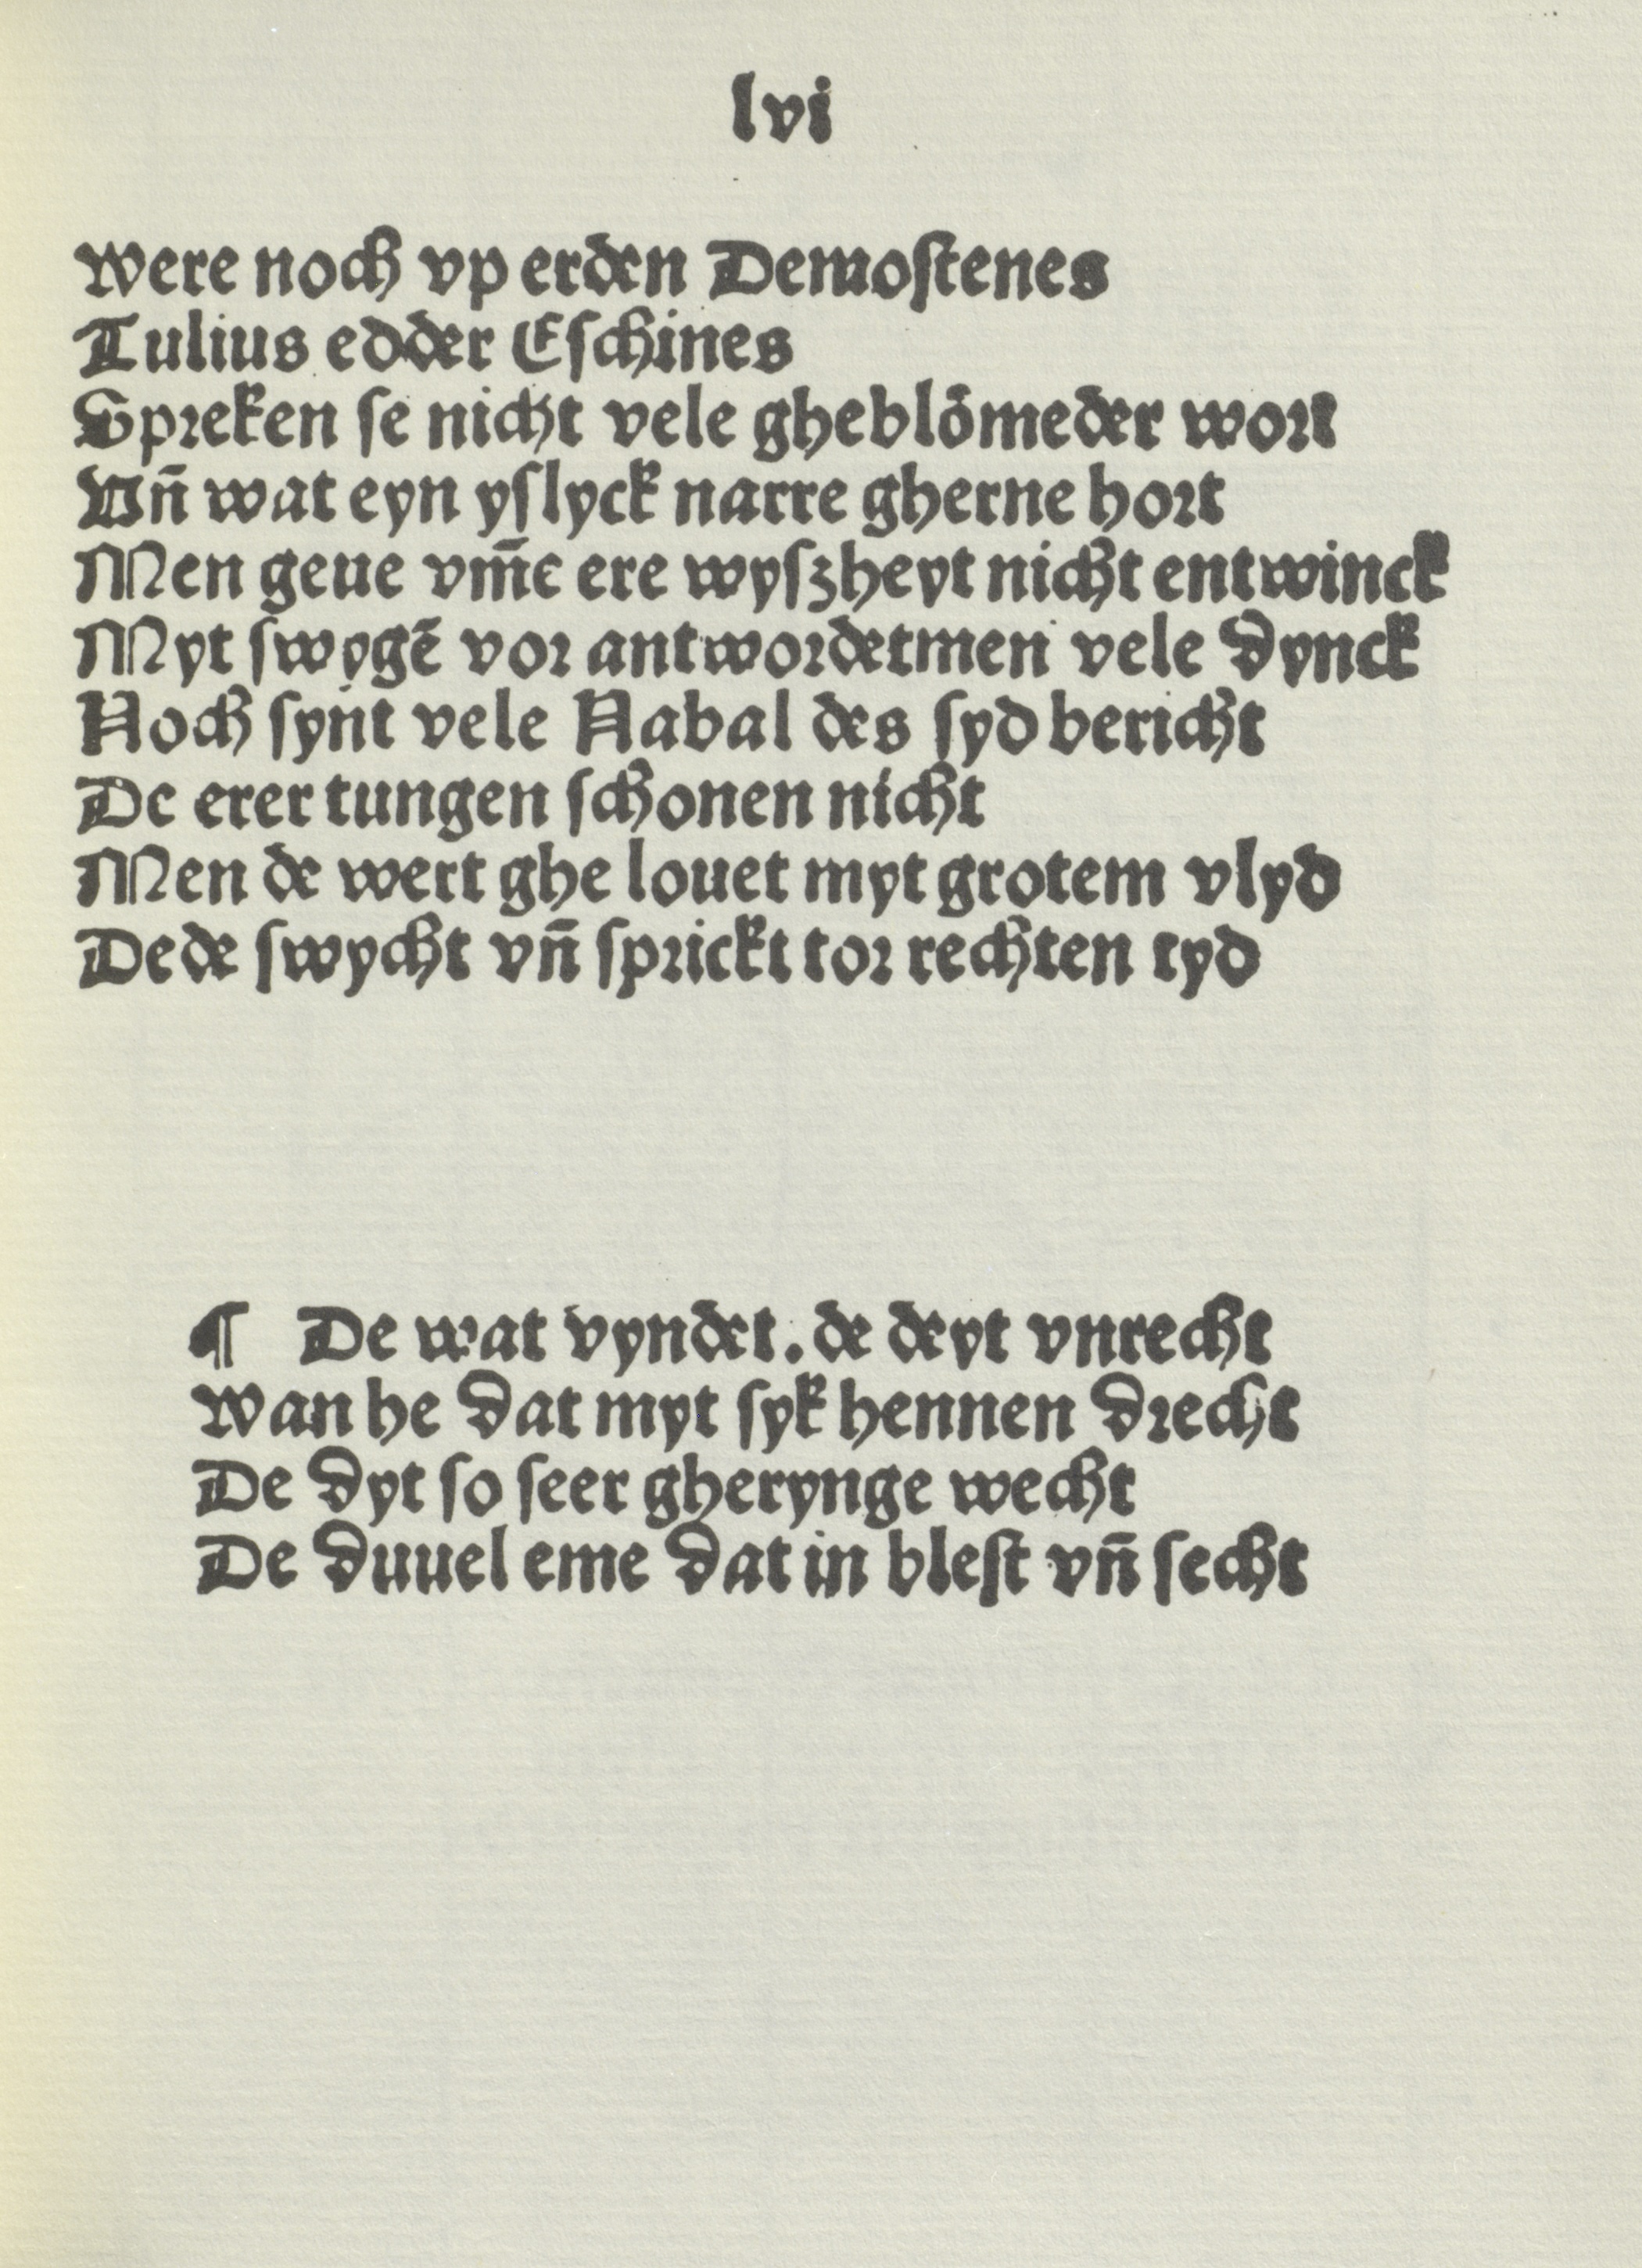 lvi
Were noch vp erden Demostenes
Tulius edder Eschines
Spreken se nicht vele gheblömeder wort
Vn̄ wat eyn yslyck narre gherne hort
Men geue vm̄e ere wyszheyt nicht entwinck
Myt swygē vor antwordetmen vele dynck
Noch synt vele Nabal des syd bericht
De erer tungen schonen nicht
Men de wert ghe louet myt grotem vlyd
Dede swycht vn̄ sprickt tor rechten tyd
¶ De wat vyndet. de deyt vnrecht
Wan he dat myt syk hennen drecht
De dyt so seer gherynge wecht
De duuel eme dat in blest vn̄ secht